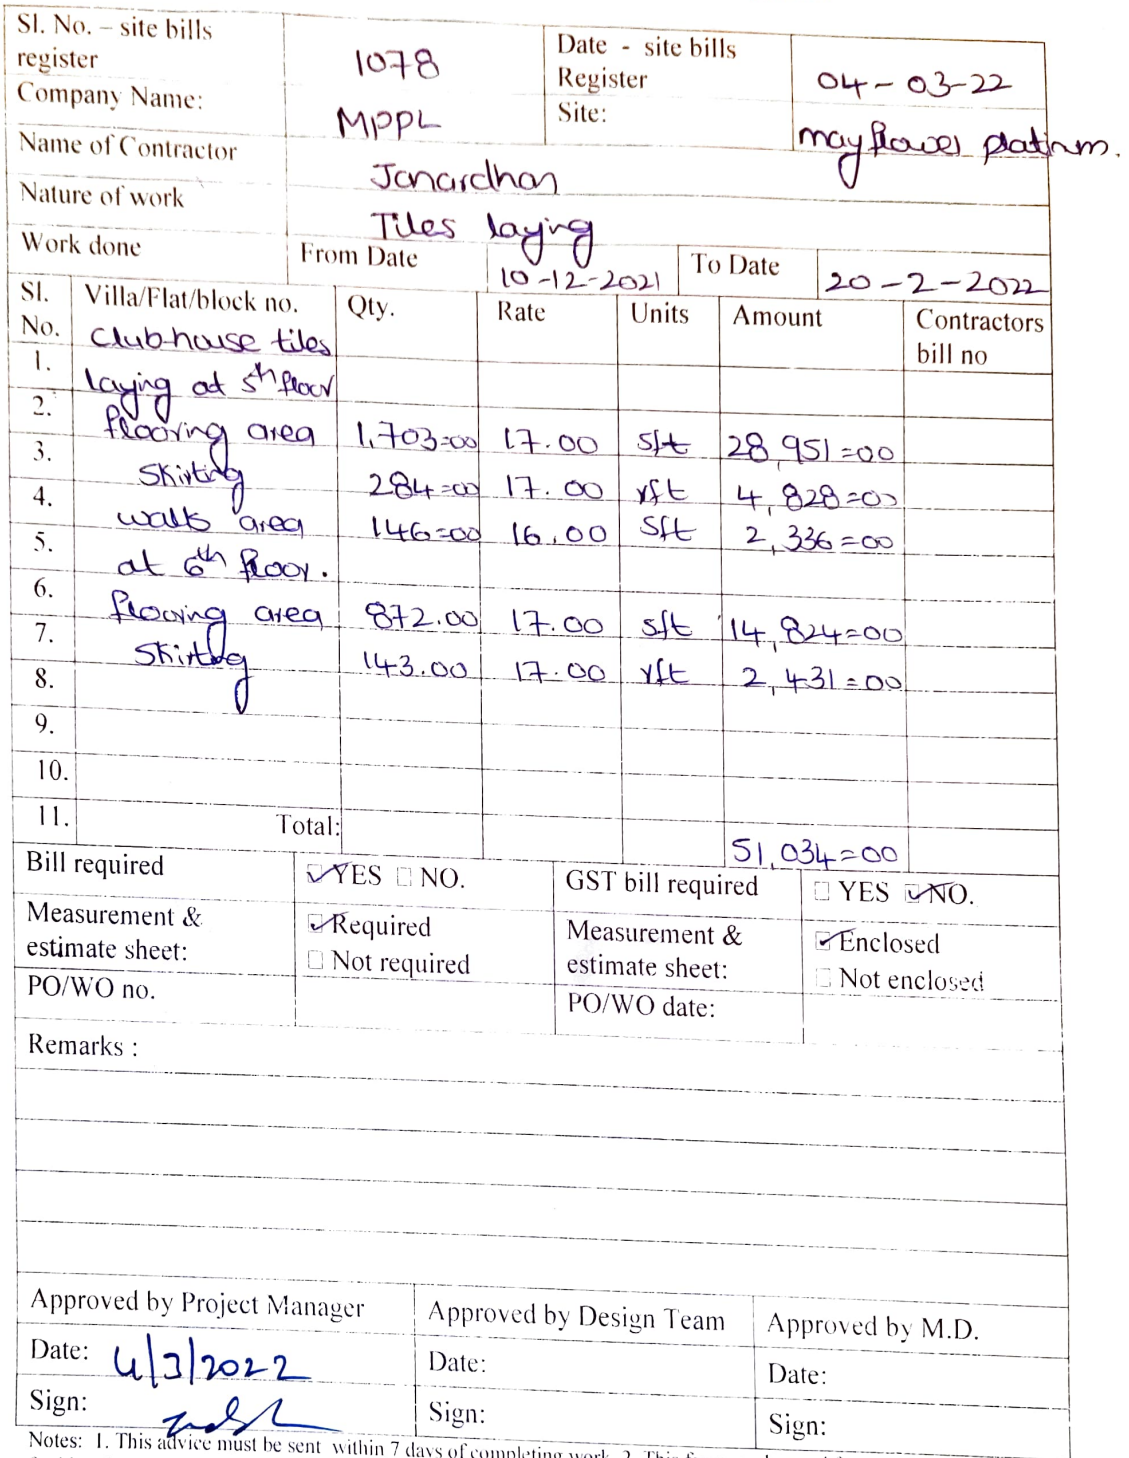 Sl. No. – site bills register 1078 Date - site bills Register 04-03-22
Company Name: MPPL Site: mayflower platinum.
Name of Contractor Janardhan
Nature of work Tiles laying
Work done From Date 10-12-2021 To Date 20-2-2022
Sl. No. Villa/Flat/block no. Qty. Rate Units Amount Contractors bill no
Clubhouse tiles
1. laying at 5th floor
2. flooring area 1,703=00 17.00 sft 28,951=00
3. Skirting 284=00 17.00 rft 4,828=00
4. walls area 146=00 16.00 sft 2,336=00
5. at 6th floor.
6. flooring area 872.00 17.00 sft 14,824=00
7. Skirting 143.00 17.00 rft 2,431=00
8.
9.
10.
11. Total: 51,034=00
Bill required YES NO. GST bill required YES NO.
Measurement & estimate sheet: Required Not required Measurement & estimate sheet: Enclosed Not enclosed
PO/WO no. PO/WO date:
Remarks :
Approved by Project Manager Approved by Design Team Approved by M.D.
Date: 4/3/2022 Date: Date:
Sign: Sign: Sign:
Notes: 1. This advice must be sent within 7 days of completing work. 2. This